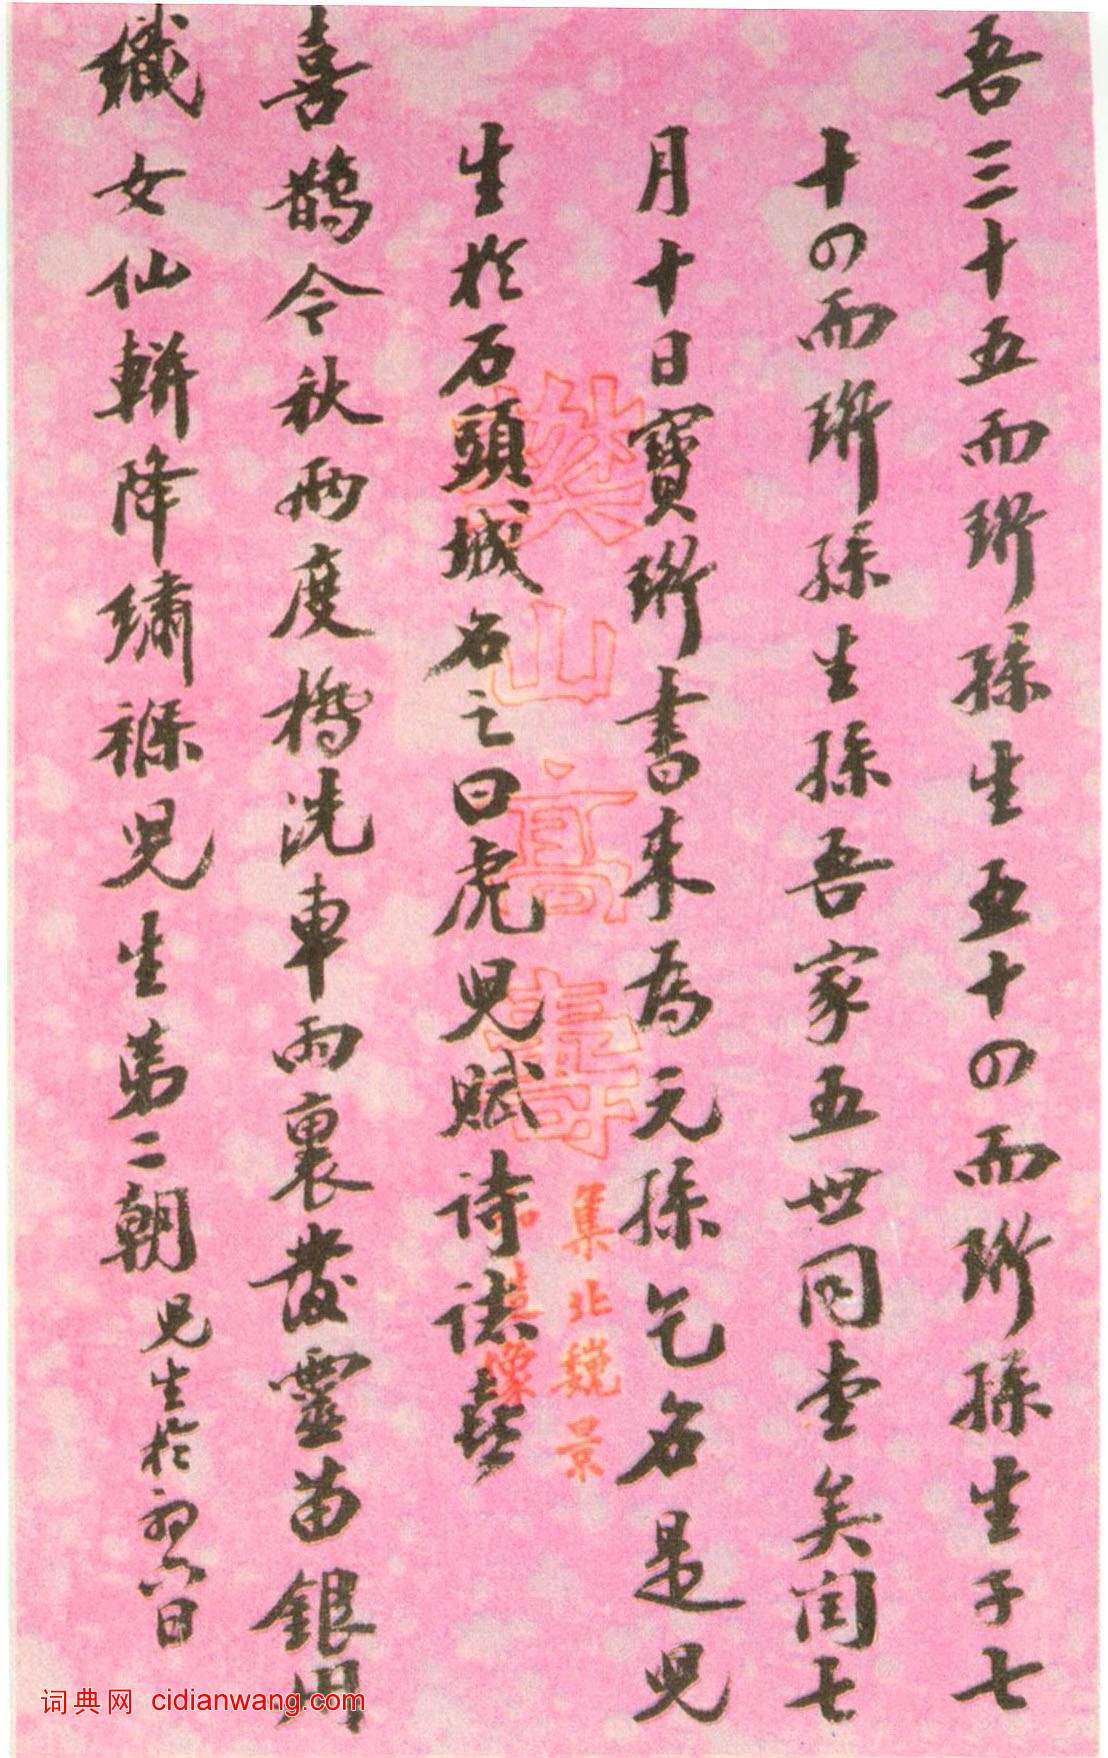 吾三十五而珩孫生五十四而珩孫生子七
十四而珩孫生孫吾家五世同堂矣閏七
月十日寶珩書來為元孫乞名是兒
生於石頭城名之曰虎兒賦詩誌喜
喜鵲令秋兩度橋洗車雨裏茂靈苗銀川
織女仙軿降繡褓兒生第二朝 兒生於初八日
樊山高壽
集北魏景
造像
词典网 cidianwang.com